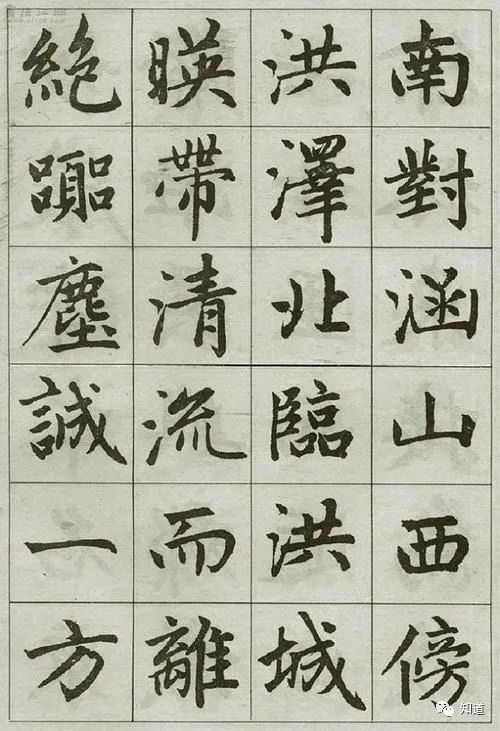 南對涵山西傍
洪澤北臨洪城
暎帶清流而離
絕囂塵誠一方
知道